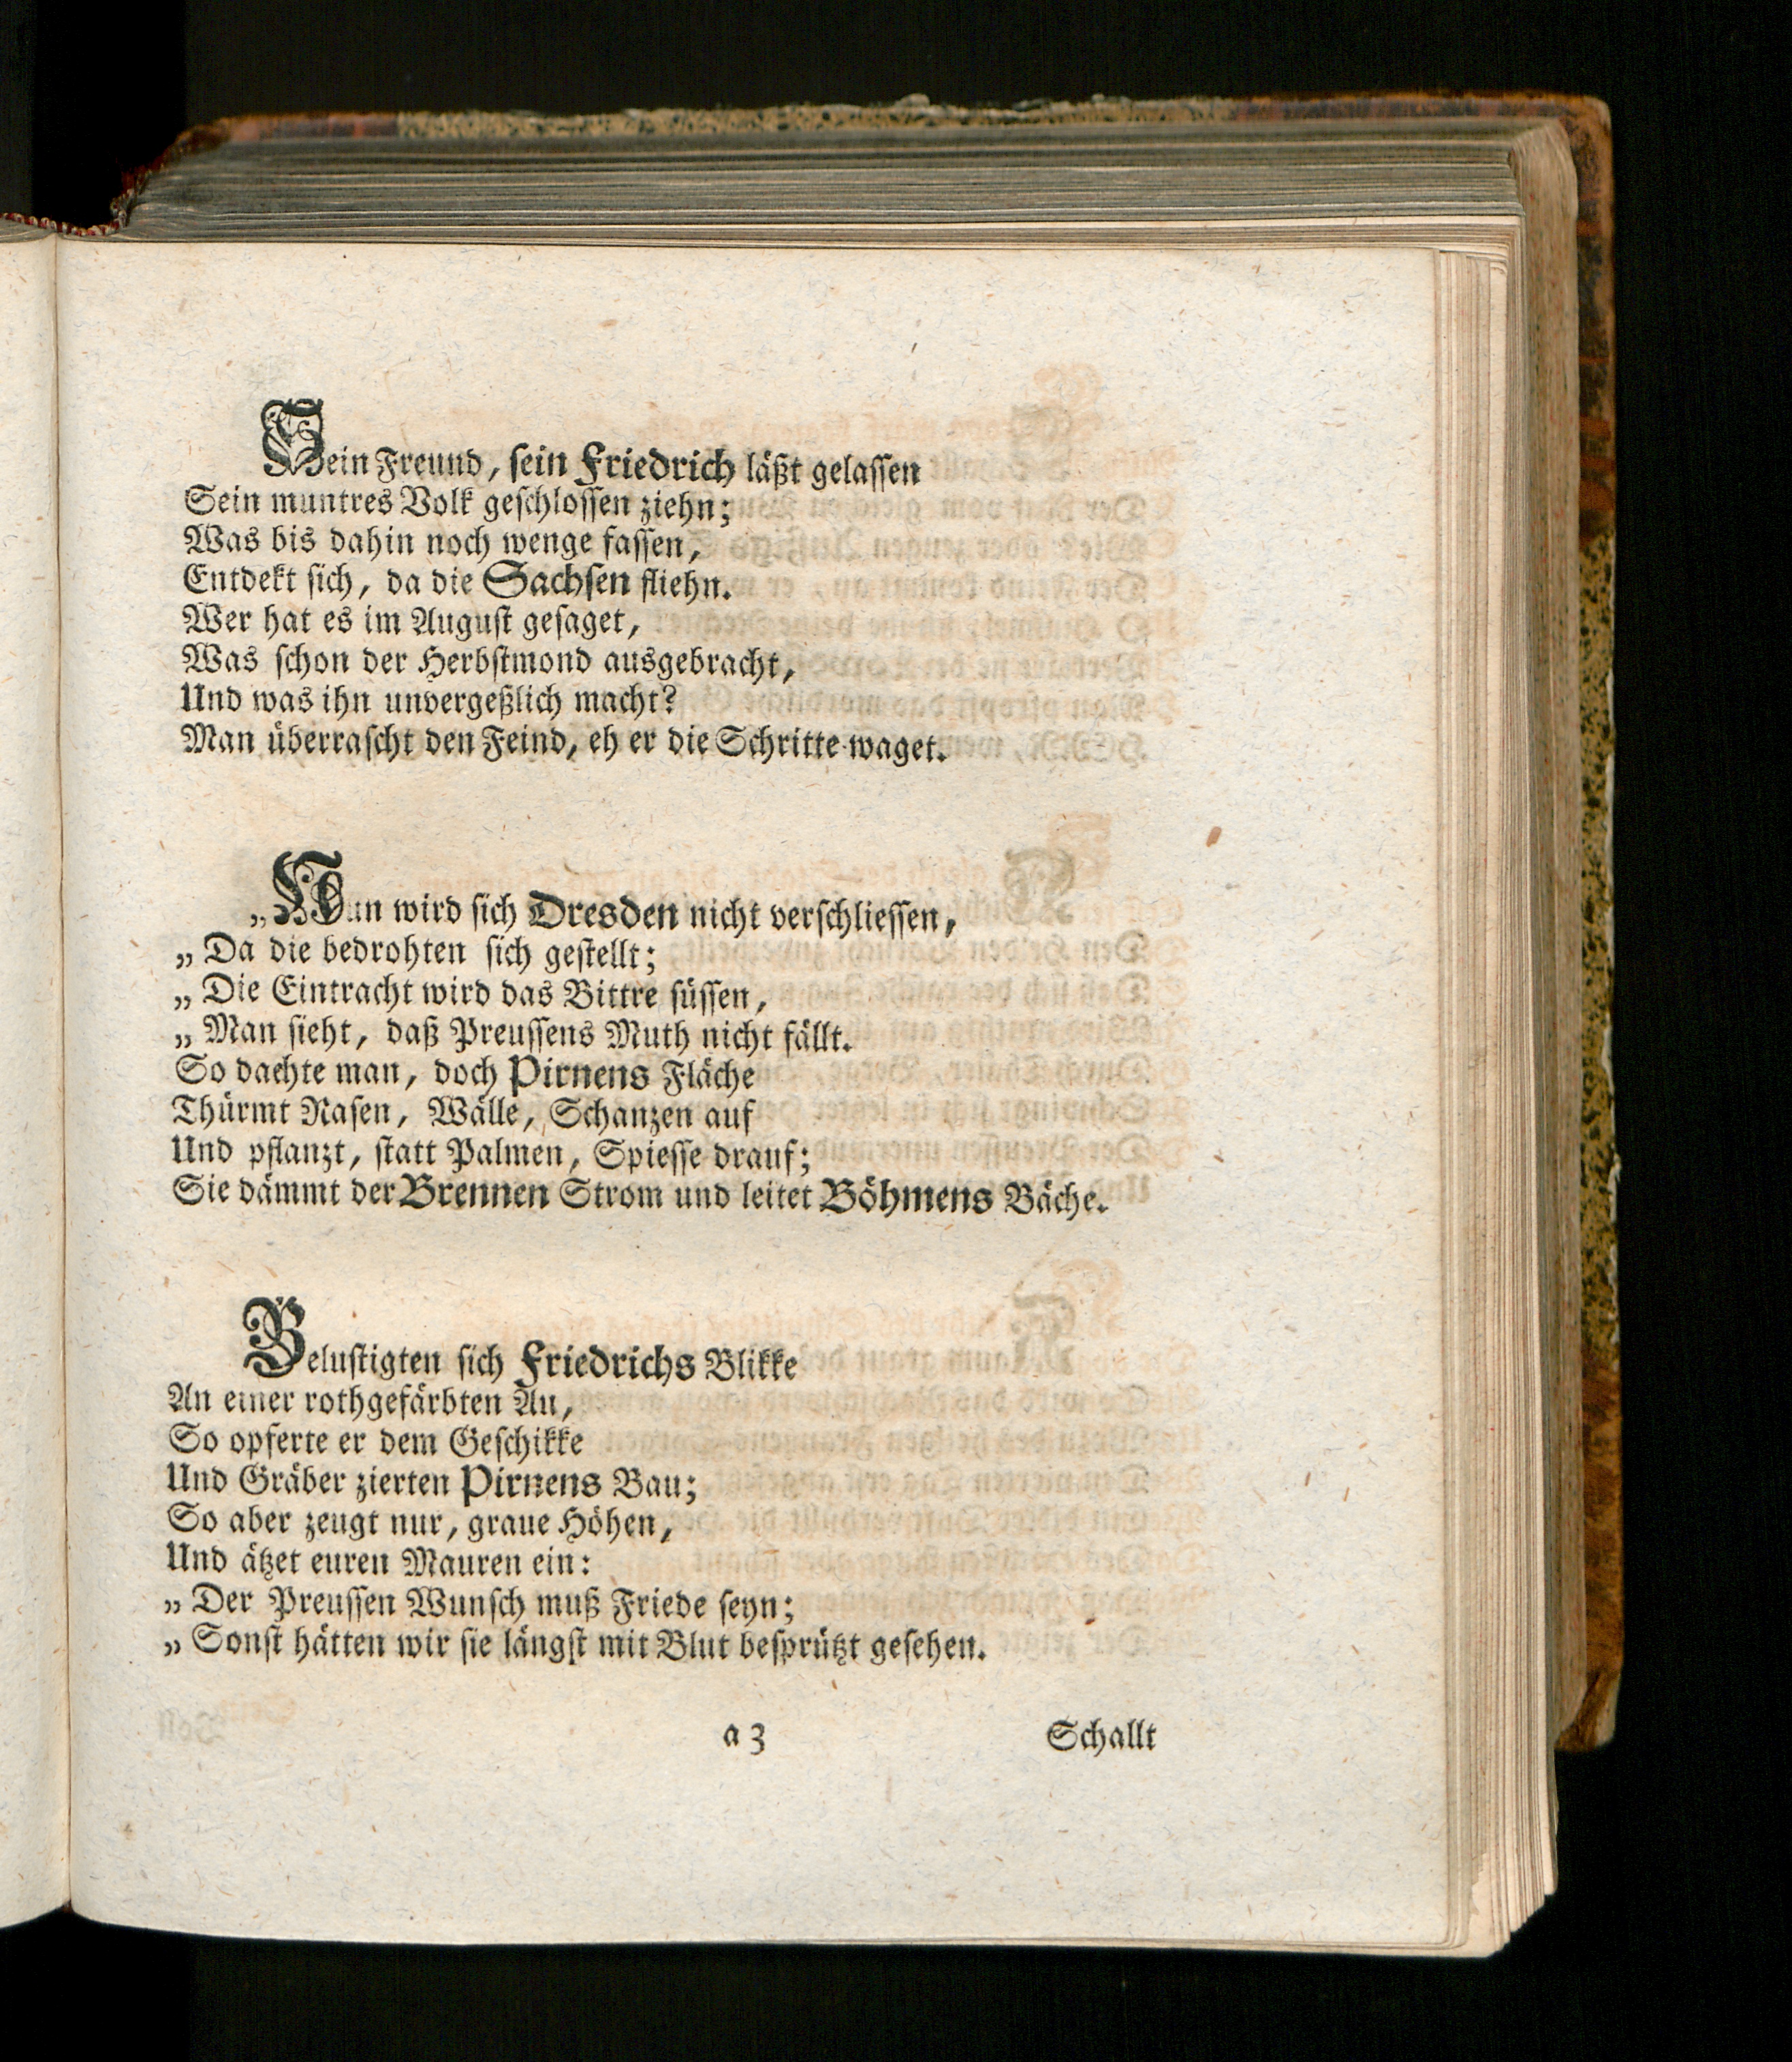 Sein Freund, sein Friedrich läßt gelassen
Sein muntres Volk geschlossen ziehn;
Was bis dahin noch wenge fassen,
Entdekt sich, da die Sachsen fliehn.
Wer hat es im August gesaget,
Was schon der Herbstmond ausgebracht,
Und was ihn unvergeßlich macht?
Man überrascht den Feind, eh er die Schritte waget.
„Nun wird sich Dresden nicht verschliessen,
„Da die bedrohten sich gestellt;
„Die Eintracht wird das Bittre süssen,
„Man sieht, daß Preussens Muth nicht fällt.
So dachte man, doch Pirnens Fläche
Thürmt Rasen, Wälle, Schanzen auf
Und pflanzt, statt Palmen, Spiesse drauf;
Sie dämmt der Brennen Strom und leitet Böhmens Bäche.
Belustigten sich Friedrichs Blikke
An einer rothgefärbten Au,
So opferte er dem Geschikke
Und Gräber zierten Pirnens Bau;
So aber zeugt nur, graue Höhen,
Und ätzet euren Mauren ein:
„Der Preussen Wunsch muß Friede seyn;
„Sonst hätten wir sie längst mit Blut besprützt gesehen.
a 3
Schallt